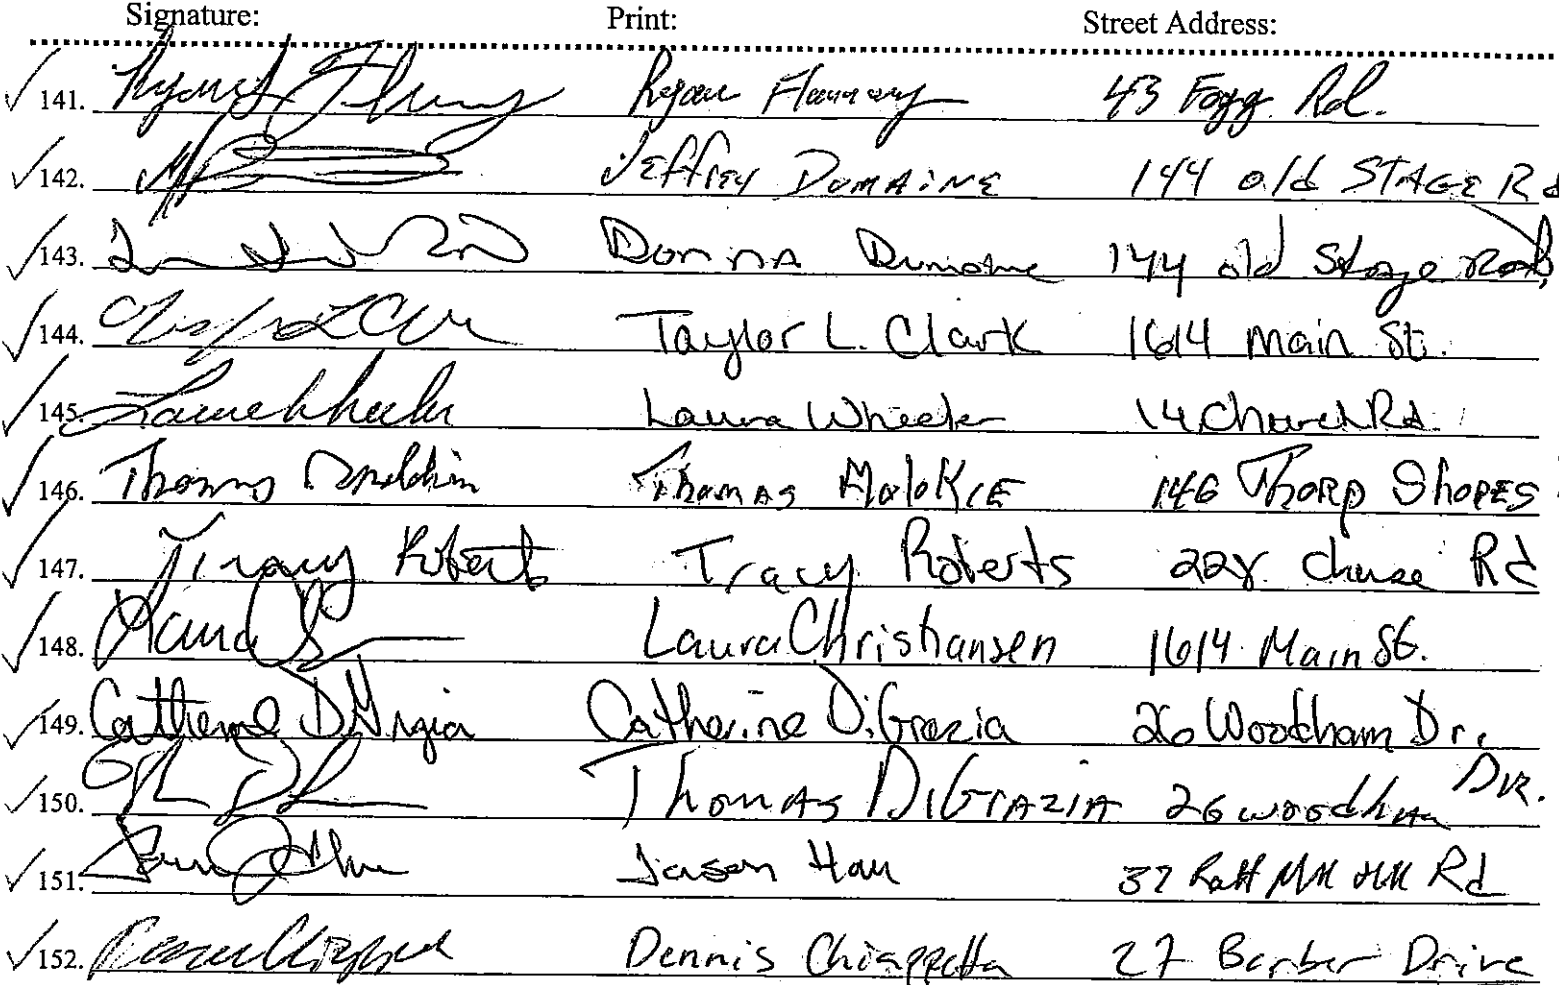 Signature: Print: Street Address:
141. Ryan Flannery 43 Fogg Rd.
142. Jeffrey DumAiNE 144 old STAGE Rd
143. DonnA Dumaine 144 old Stage Road
144. Taylor L. Clark 1614 Main St.
145. Laura Wheeler Laura Wheeler 14 Church Rd.
146. Thomas ThomAs 146 ThORP ShORES
147. Tracy Roberts Tracy Roberts 228 chase Rd
148. Laura Laura Christiansen 1614 Main St.
149. Catherine DiGrazia Catherine DiGrazia 26 Woodham Dr.
150. ThomAs DiGrAZIA 26 woodham DR.
151. Jason 37 Mill Hill Rd
152. Dennis Chiappetta 27 Barber Drive